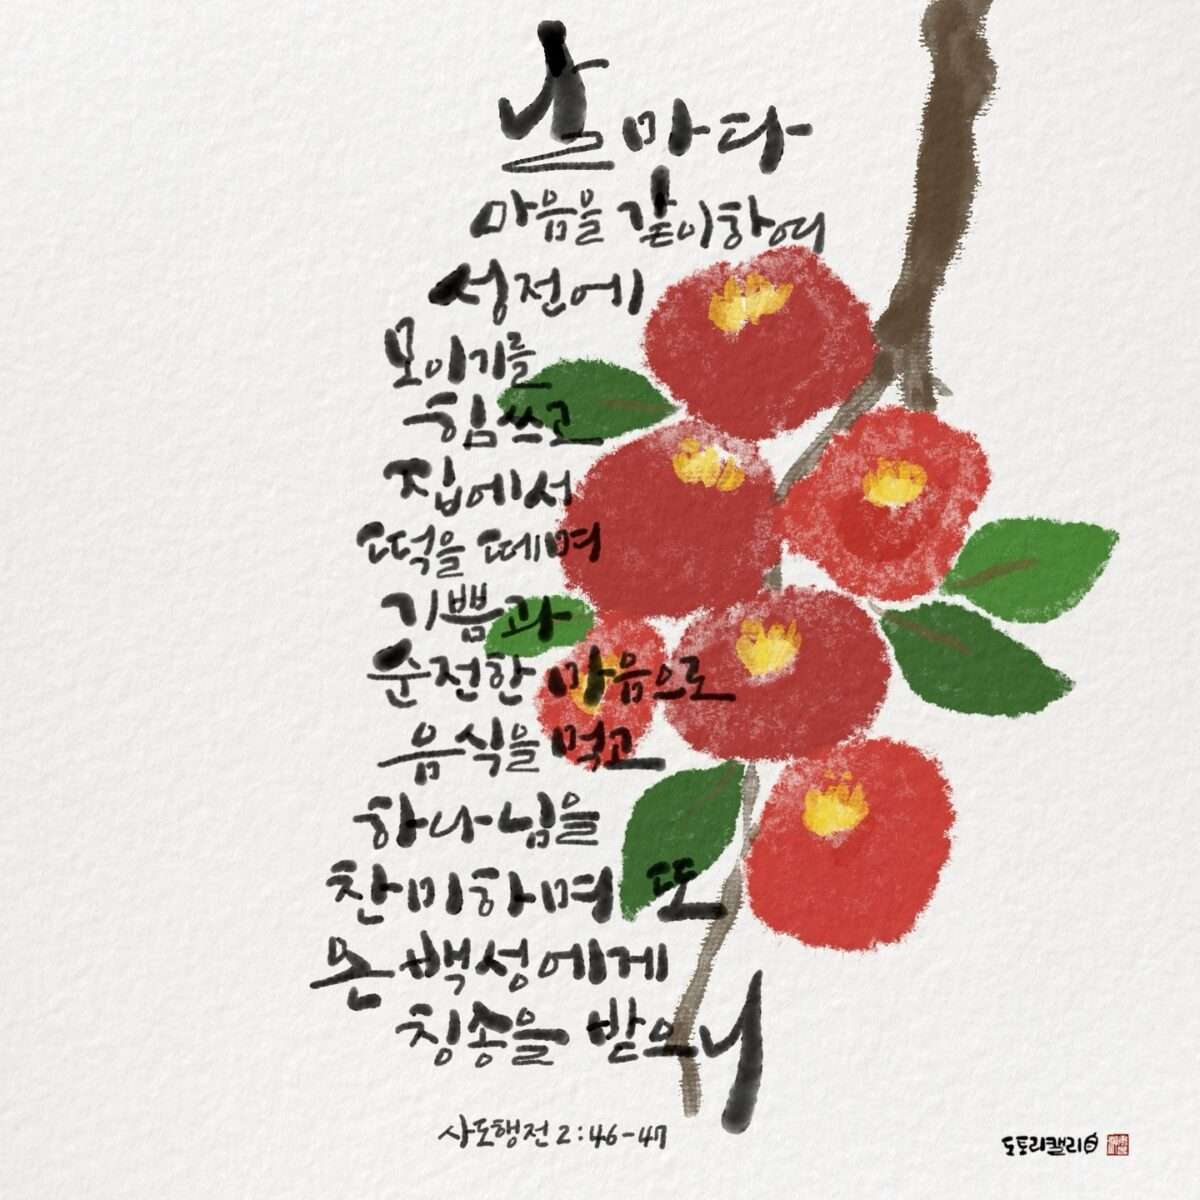 날마다
마음을 같이하여
성전에
모이기를
힘쓰고
집에서
떡을 떼며
기쁨과
순전한 마음으로
음식을 먹고
하나님을
찬미하며 또
온 백성에게
칭송을 받으니
사도행전 2:46-47
도토리캘리